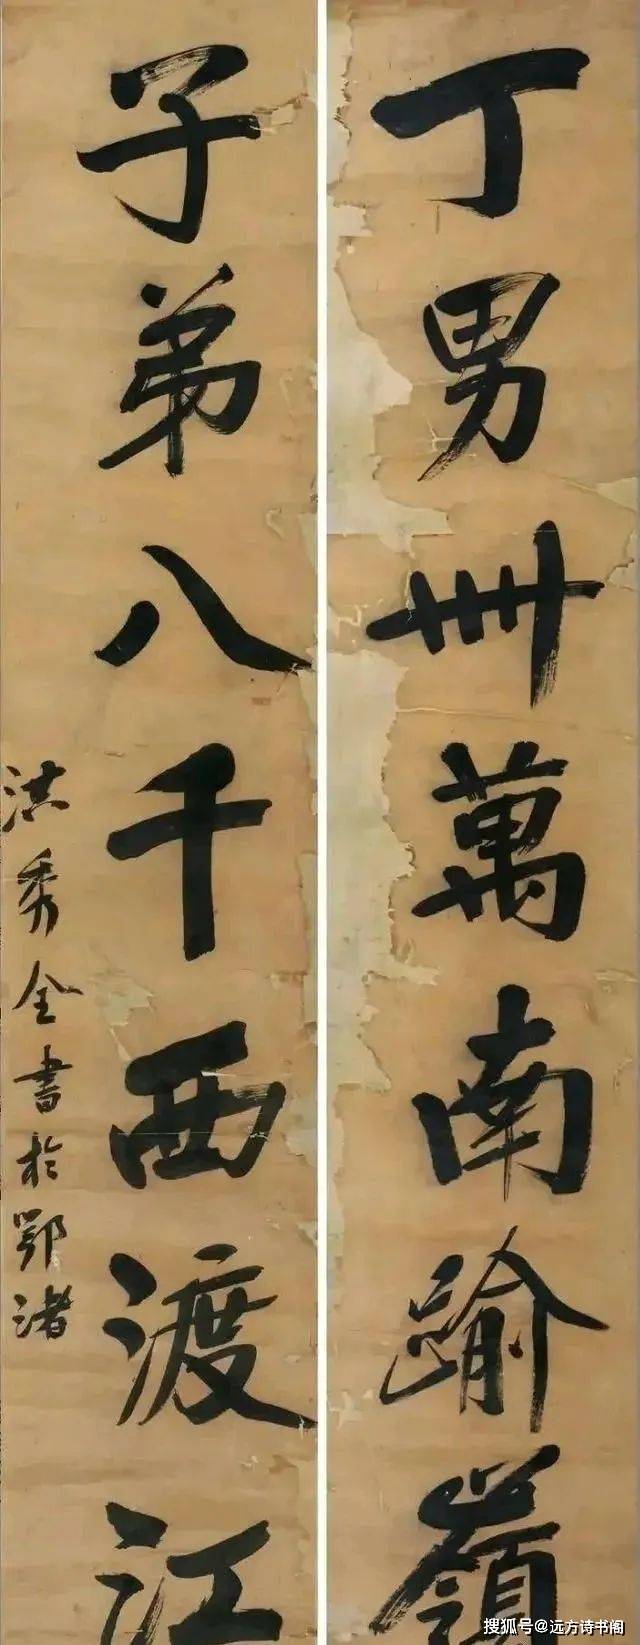 丁男卌萬南踰嶺
子弟八千西渡江
洪秀全書於鄂渚
搜狐号@远方诗书阁